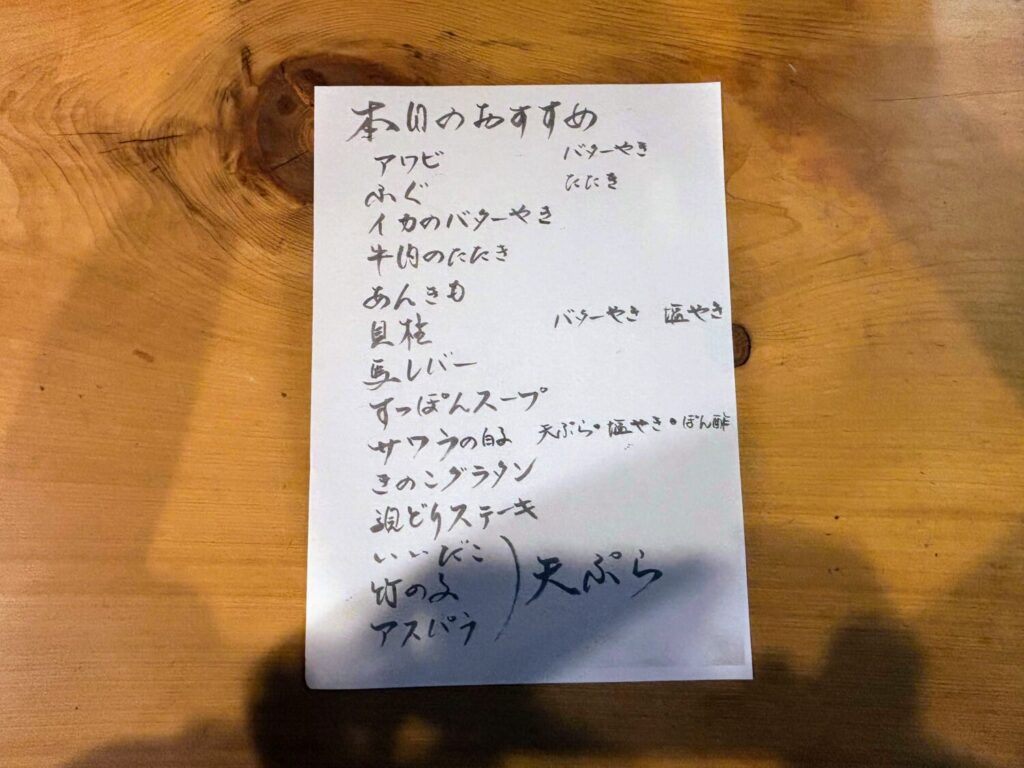 本日のおすすめ
アワビ バターやき
ふぐ たたき
イカのバターやき
牛肉のたたき
あんきも
貝柱 バターやき 塩やき
馬レバー
すっぽんスープ
サワラの白子 天ぷら・塩やき・ぽん酢
きのこグラタン
親どりステーキ
いいだこ
竹の子 天ぷら
アスパラ